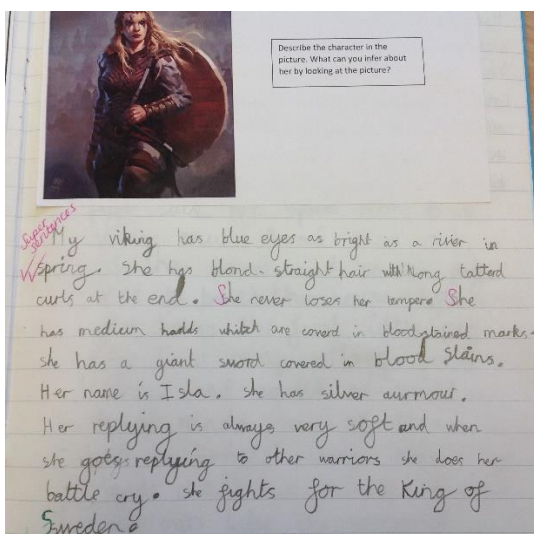 Describe the character in the
picture. What can you infer about
her by looking at the picture?
Super
sentences
My viking has blue eyes as bright as a river in
spring. She has blond straight hair with long tatterd
curls at the end. She never loses her tempere She
has medium hands whitch are coverd in bloodstained marks.
she has a giant sword covered in blood stains.
Her name is Isla. she has silver aurmour.
Her replying is always very soft and when
she goes replying to other warriors she does her
battle cry. she fights for the King of
Sweden.